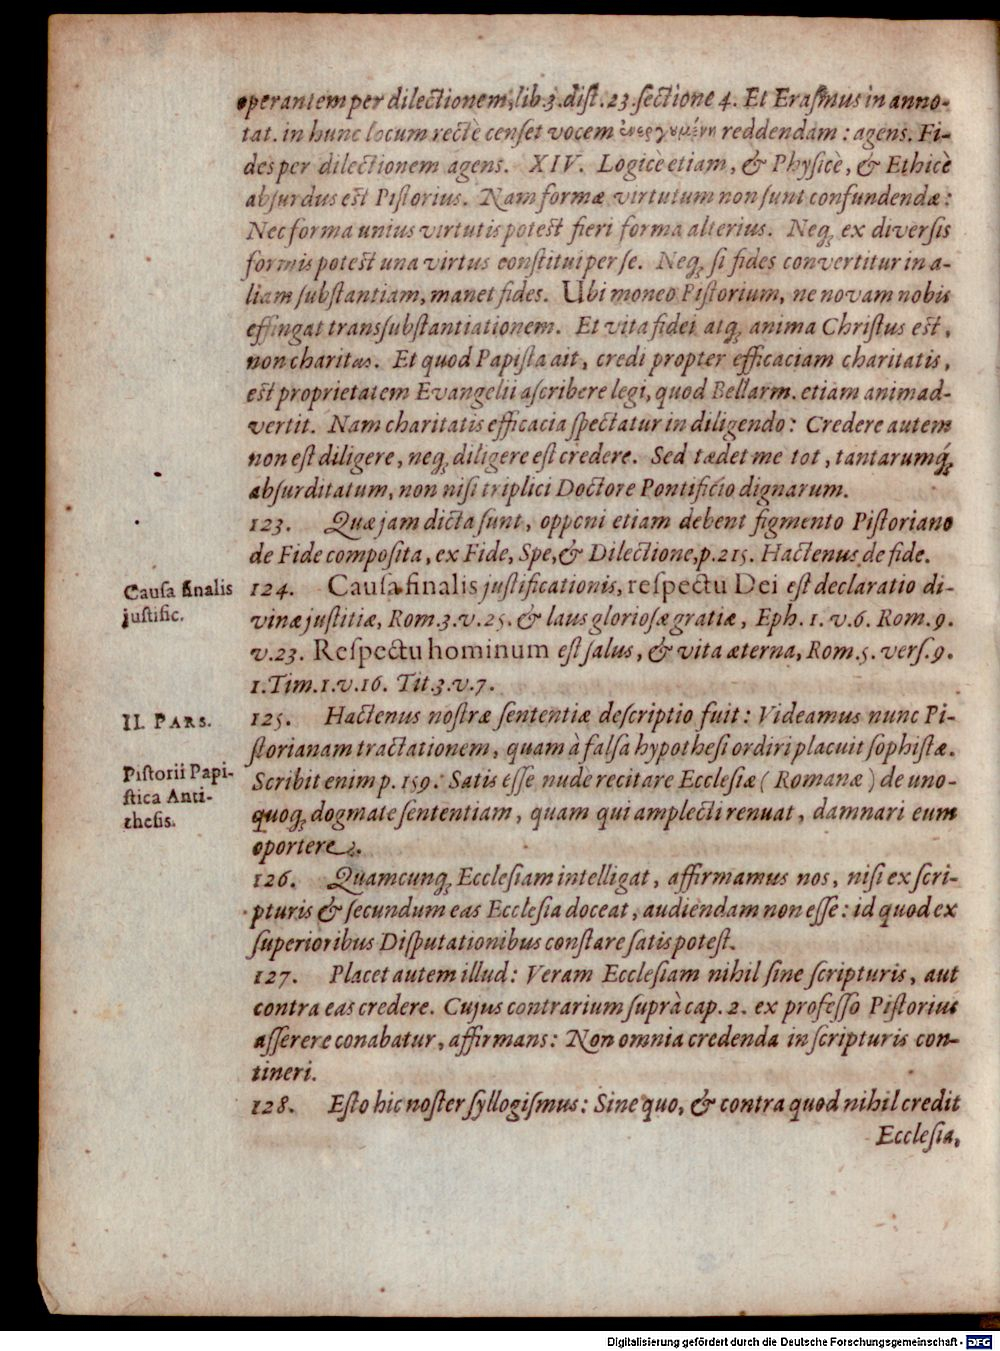 operantem per dilectionem, lib.3. dist. 23. sectione 4. Et Erasmus in anno-
tat. in hunc locum rectè censet vocem ἐνεργυμένη reddendam: agens. Fi-
des per dilectionem agens. XIV. Logicè etiam, & Physicè, & Ethicè
absurdus est Pistorius. Nam formæ virtutum non sunt confundendæ:
Nec forma unius virtutis potest fieri forma alterius. Neq; ex diversis
formis potest una virtus constitui per se. Neq; si fides convertitur in a-
liam substantiam, manet fides. Ubi moneo Pistorium, ne novam nobis
effingat transsubstantiationem. Et vita fidei atq; anima Christus est,
non charitas. Et quod Papista ait, credi propter efficaciam charitatis,
est proprietatem Evangelii ascribere legi, quod Bellarm. etiam animad-
vertit. Nam charitatis efficacia spectatur in diligendo: Credere autem
non est diligere, neq; diligere est credere. Sed tædet me tot, tantarumq́;
absurditatum, non nisi triplici Doctore Pontificio dignarum.
123. Quæ jam dicta sunt, opponi etiam debent figmento Pistoriano
de Fide composita, ex Fide, Spe, & Dilectione, p. 215. Hactenus de fide.
Causa finalis
justific.
124. Causa finalis justificationis, respectu Dei est declaratio di-
vinæ justitiæ, Rom.3.v.25. & laus gloriosæ gratiæ, Eph. 1. v.6. Rom. 9.
v.23. Respectu hominum est salus, & vita æterna, Rom.5. vers.9.
1.Tim.1.v.16. Tit.3.v.7.
II. PARS.
125. Hactenus nostræ sententiæ descriptio fuit: Videamus nunc Pi-
storianam tractationem, quam à falsa hypothesi ordiri placuit sophistæ.
Pistorii Papi-
stica Anti-
thesis.
Scribit enim p. 159. Satis esse nude recitare Ecclesiæ (Romanæ) de uno-
quoq; dogmate sententiam, quam qui amplecti renuat, damnari eum
oportere.
126. Quamcunq; Ecclesiam intelligat, affirmamus nos, nisi ex scri-
pturis & secundum eas Ecclesia doceat, audiendam non esse: id quod ex
superioribus Disputationibus constare satis potest.
127. Placet autem illud: Veram Ecclesiam nihil sine scripturis, aut
contra eas credere. Cujus contrarium suprà cap. 2. ex professo Pistorius
asserere conabatur, affirmans: Non omnia credenda in scripturis con-
tineri.
128. Esto hic noster syllogismus: Sine quo, & contra quod nihil credit
Ecclesia,
Digitalisierung gefördert durch die Deutsche Forschungsgemeinschaft - DFG